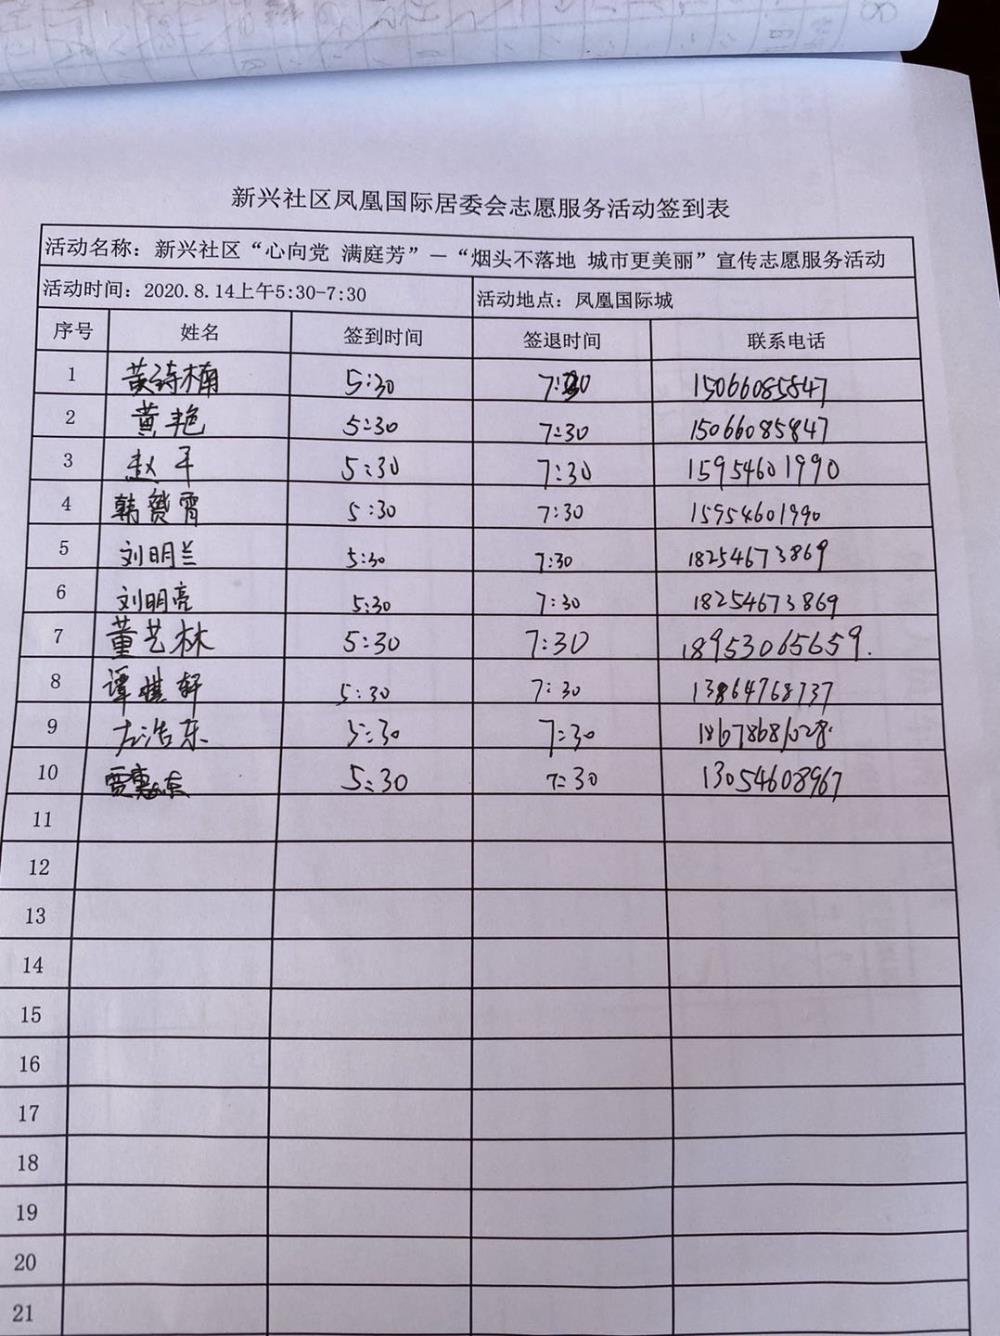 新兴社区凤凰国际居委会志愿服务活动签到表
活动名称：新兴社区“心向党 满庭芳”—“烟头不落地 城市更美丽”宣传志愿服务活动
活动时间：2020.8.14上午5:30-7:30 活动地点：凤凰国际城
序号 姓名 签到时间 签退时间 联系电话
1 黄诗楠 5:30 7:30 15066085847
2 黄艳 5:30 7:30 15066085847
3 赵平 5:30 7:30 15954601990
4 韩赟霄 5:30 7:30 15954601990
5 刘明兰 5:30 7:30 18254673869
6 刘明亮 5:30 7:30 18254673869
7 董艺林 5:30 7:30 18953065659.
8 谭棋轩 5:30 7:30 13864768737
9 左浩东 5:30 7:30 18678681028
10 贾惠 5:30 7:30 13054608967
11
12
13
14
15
16
17
18
19
20
21